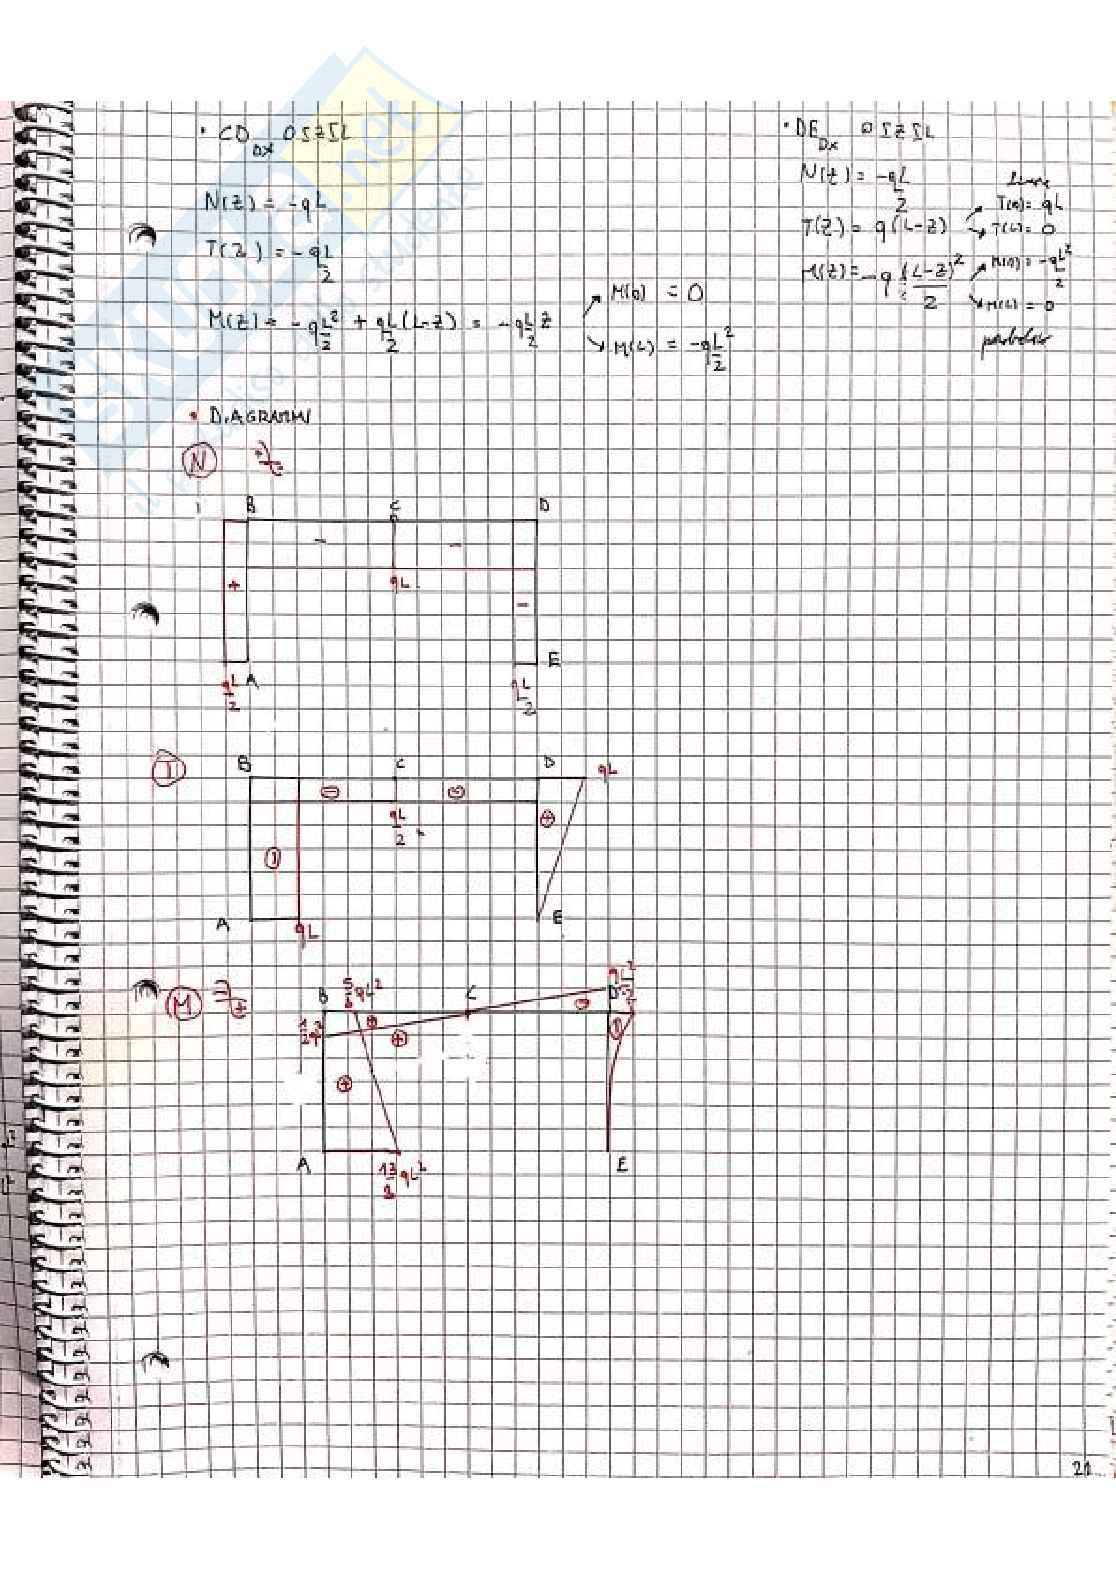 • CD Dx 0≤z≤L
N(z) = -qL
T(z) = -qL/2
M(z) = -qL²/2 + qL/2 (L-z) = -qL/2 z
M(0) = 0
M(L) = -qL²/2
• DE Dx 0≤z≤L
N(z) = -qL/2
T(z) = q(L-z)
T(0) = qL
T(L) = 0
M(z) = -q (L-z)²/2
M(0) = -qL²/2
M(L) = 0
• DIAGRAMMI
N
B C D
- -
+ qL -
A E
qL/2 qL/2
T
B C D qL
- - +
qL/2
-
A E
qL
M
B 5/8 qL² C D qL²/2
+ + - -
+
A E
13/8 qL²
21